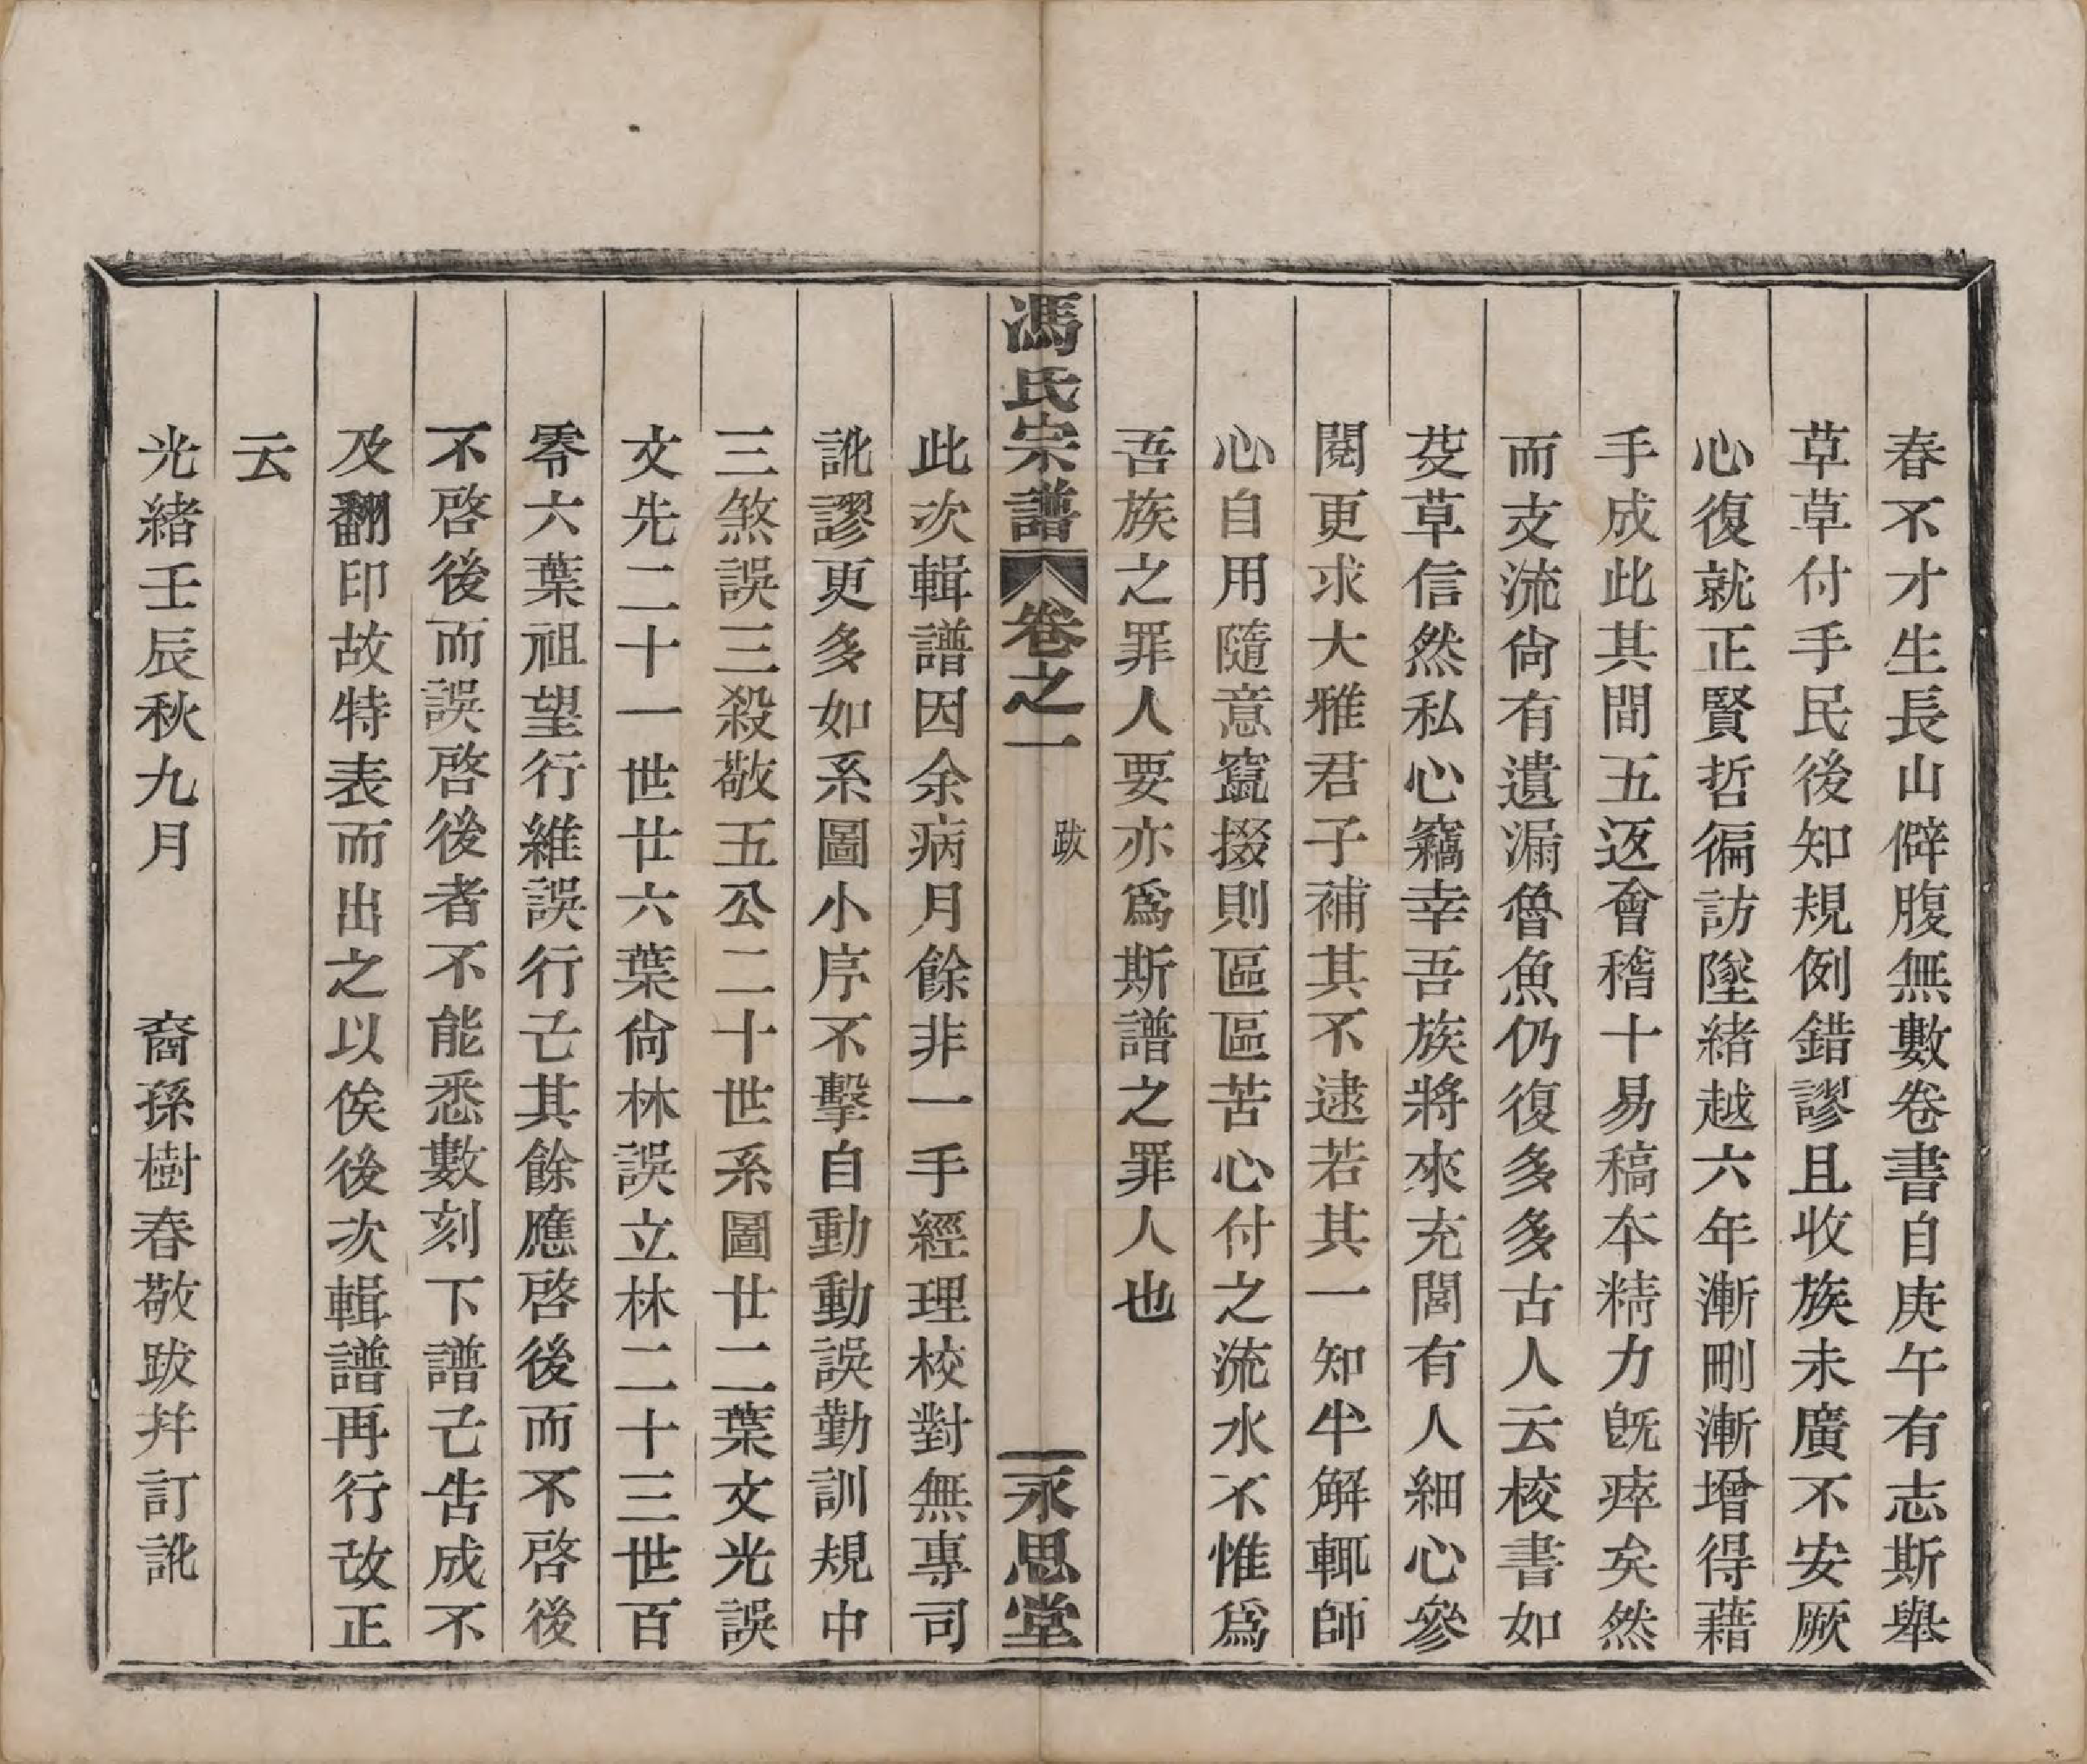 春不才生長山僻腹無數卷書自庚午有志斯舉
草草付手民後知規例錯謬且收族未廣不安厥
心復就正賢哲徧訪墜緒越六年漸刪漸增得藉
手成此其間五返會稽十易稿本精力旣瘁矣然
而支流尙有遺漏魯魚仍復多多古人云校書如
芟草信然私心竊幸吾族將來充閭有人細心參
閱更求大雅君子補其不逮若其一知半解輒師
心自用隨意竄掇則區區苦心付之流水不惟爲
吾族之罪人要亦爲斯譜之罪人也
馮氏宗譜 卷之一 跋 永思堂
此次輯譜因余病月餘非一手經理校對無專司
訛謬更多如系圖小序不擊自動動誤勤訓規中
三煞誤三殺敬五公二十世系圖廿二葉文光誤
文先二十一世廿六葉尙林誤立林二十三世百
零六葉祖望行維誤行己其餘應啓後而不啓後
不啓後而誤啓後者不能悉數刻下譜己告成不
及翻印故特表而出之以俟後次輯譜再行改正
云
光緒壬辰秋九月 裔孫樹春敬跋并訂訛